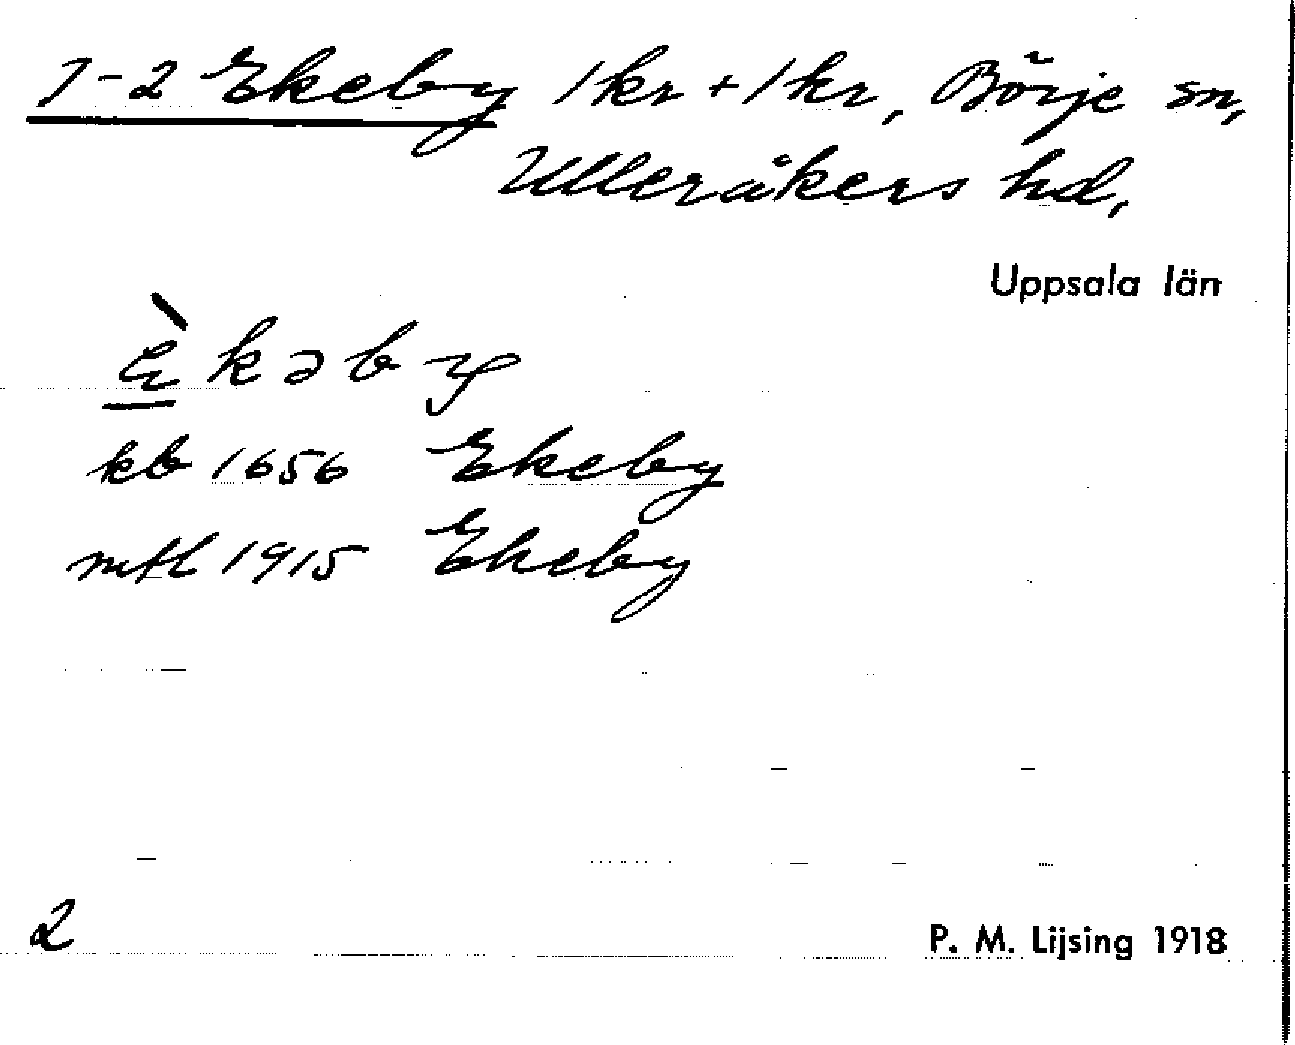 1-2 Ekeby 1 kr + 1 kr, Börje sn,
Ulleråkers hd,
Uppsala län
È̱kəby
kb 1656 Ekeby
mtl 1915 Ekeby
2
P. M. Lijsing 1918